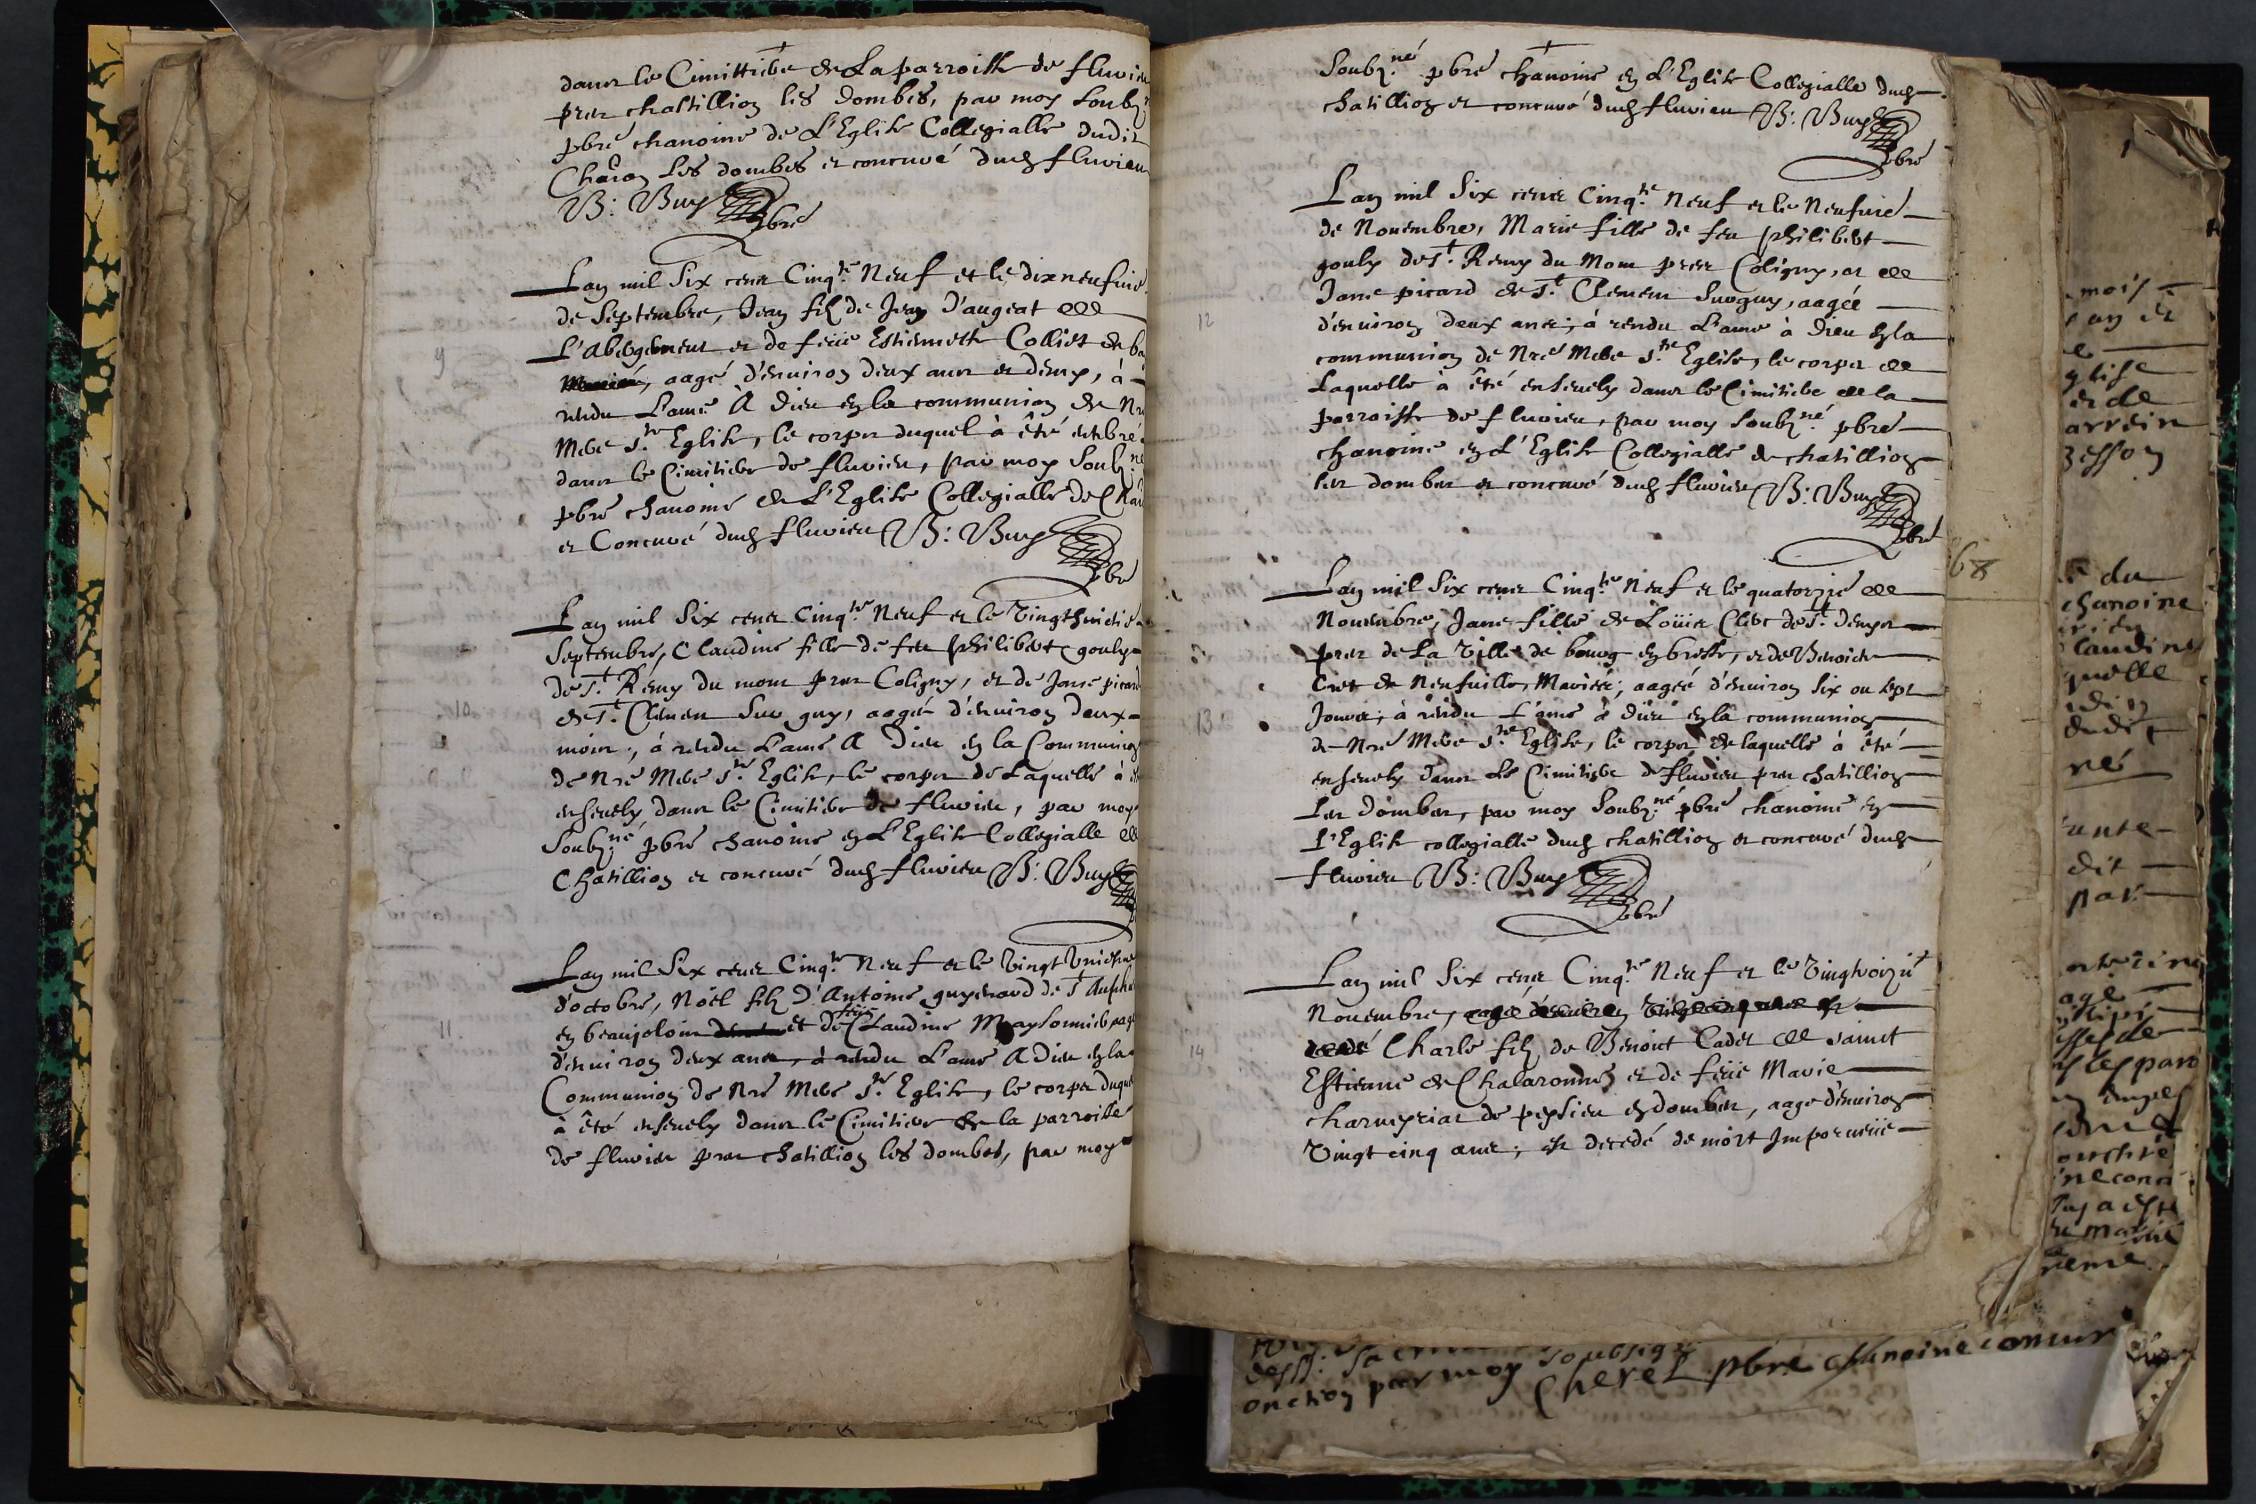 dans le Cimittiere de La parroisse de fluvieu
pres chastillion les Dombes, par moy soubz
pbre chanoine de L'Eglise Collegialle dudit
Chaôn Les dombes et concuré dud fluvieu
B: Buyz pbre
Lan mil Six cens Cinqte Neuf et le dixneufuie
de Septembre, Jean filz de Jean D'augeat de
L'Abergement et de feüe Estiennette Colliet de
aagé d'enuiron deux ans et demy, à
rendu L'ame A Dieu en la communion de Nre
Mere Ste Eglise, le corps duquel à été enterré
dans le Cimitiere de fluvieu, par moy Soubzné
pbre chanoine de L'Eglise Collegialle de Chaôn
et Concuré dud fluvieu B: Buyz
pbre
Lan mil Six cens Cinqte Neuf et le vingthuictie
Septembre, Claudine fille de feu Philibert gouly
de St Remy du mont pres Coligny, et de Jane picard
de St Clement Sur guy, aagée d'enuiron deux
mois, à rendu L'ame A Dieu en la Communion
de Nre Mere Ste Eglise, le corps de Laquelle à
enseuely dans le Cimitiere de fluvieu, par moy
Soubzné pbre chanoine en L'Eglise Collegialle de
Chatillion et concuré dud fluvieu B: Buyz
Lan mil Six cens Cinqte Neuf et le vingt
d'octobre, Noël filz d'Antoine guyenard de St
en beaujolois et de feüe Claudine Maysonnier aagé
d'enuiron deux ans, à rendu L'ame A Dieu en la
Communion de Nre Mere Ste Eglise, le corps duquel
à été enseuely dans le Cimitiere de la parroisse
de fluvieu pres chatillion les dombes, par moy
9
10
11
Soubzné pbre chanoine en L'Eglise Collegialle dud
chatillion et concuré dud fluvieu B: Buyz
pbre
Lan mil Six cens Cinqte Neuf et le Neufuie
de Nouembre, Marie fille de feu philibert
gouly de St Remy du Mont pres Coligny, et de
Jane picard de St Clement Surguy, aagée
d'enuiron deux ans, à rendu L'ame à Dieu en la
communion de Nre Mere Ste Eglise, le corps de
Laquelle à été enseuely dans le Cimitiere de la
parroisse de fluvieu, par moy soubzné pbre
chanoine en L'Eglise Collegialle de chatillion
les dombes et concuré dud fluvieu B: Buyz
pbre
Lan mil Six cens Cinqte Neuf et le quatorzie de
Nouembre, Jane fille de Loüis Clerc de St Denys
pres de La Ville de bourg en bresse, et de Benoicte
Cret de Neufuille, Mariés; aagée d'enuiron six ou sept
Jours, à rendu L'ame à Dieu en la communion
de Nre Mere Ste Eglise, le corps de laquelle à été
enseuely dans Le Cimitiere de fluvieu pres chatillion
Les Dombes, par moy Soubzné pbre chanoine en
L'Eglise collegialle dud chatillion et concuré dud
fluvieu B: Buyz
pbre
Lan mil Six cens Cinqte Neuf et le Vingtroizie
Nouembre,
Charle filz de Benoict Cadet de sainct
Estienne de Chalaronne et de feüe Marie
de peysieu en dombes, aagé d'enuiron
Vingt cinq ans; est decedé de mort Impourueüe
12
13
14
68
mois
glise
et de
du
chanoine
laudine
quelle
dudit
né
dit
par
onction par moy soubsigé
Cheret pbre chanoine concur